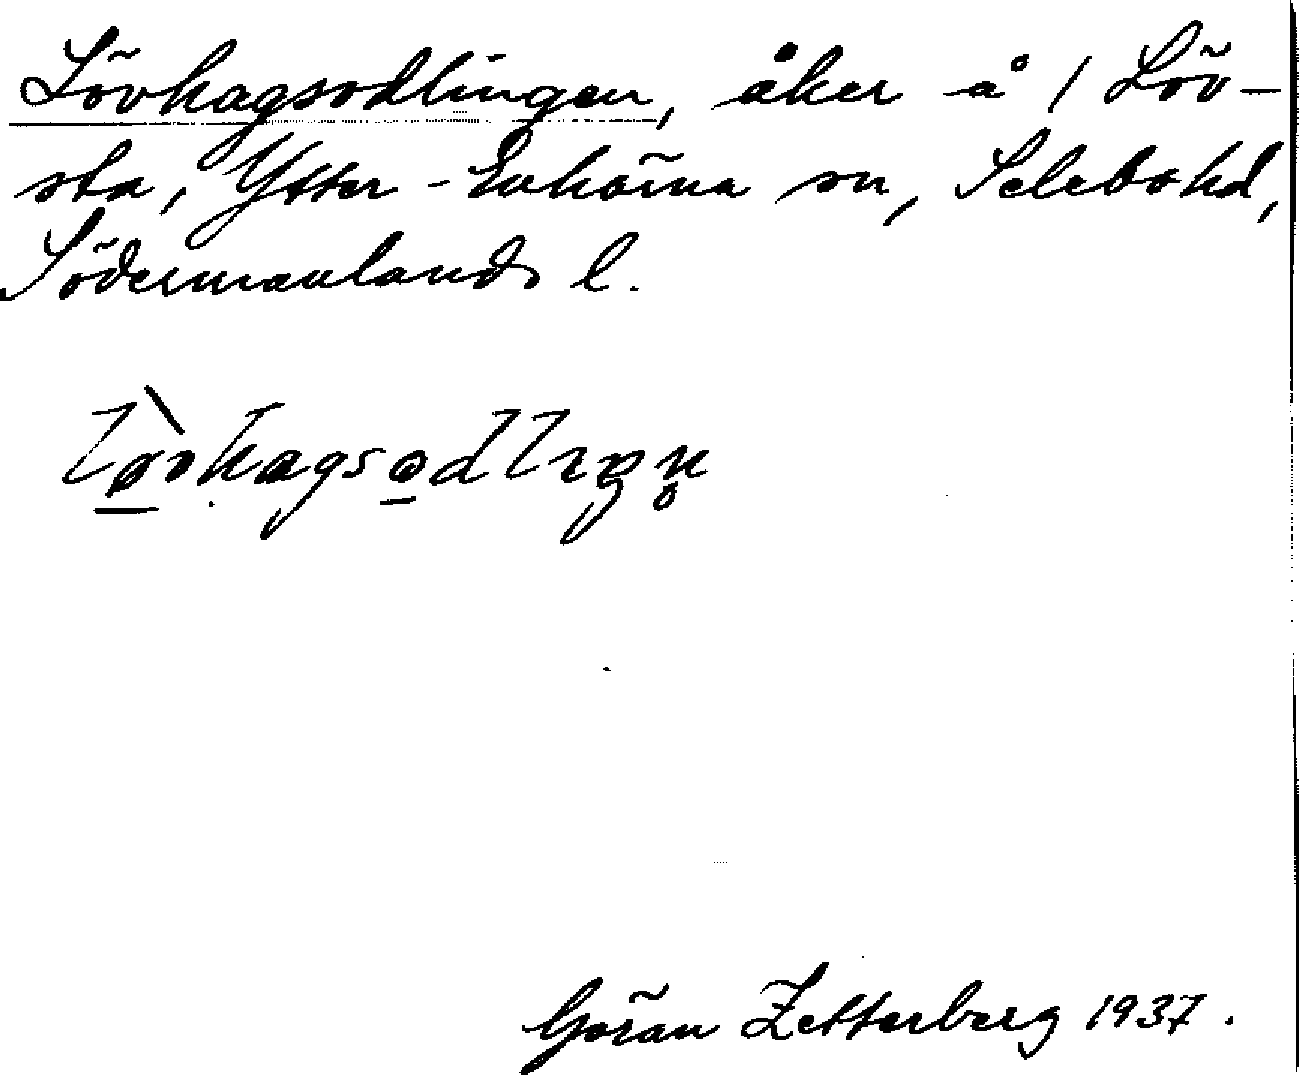 Lövhagsodlingen, åker å 1 Löv-
sta, Ytter-Enhörna sn, Selebo hd,
Södermanlands l.
Göran Zetterberg 1937.